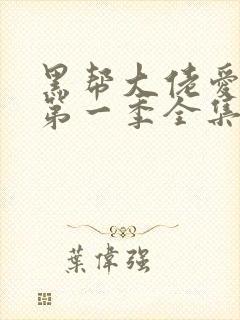 黑帮大佬爱
第一季全集
葉偉强